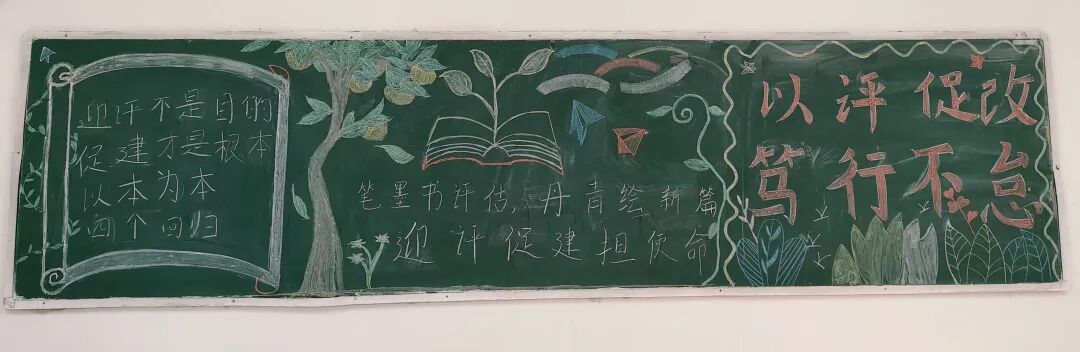 迎评不是目的
促建才是根本
以本为本
四个回归
笔墨书评估，丹青绘新篇
迎评促建担使命
以评促改
笃行不怠